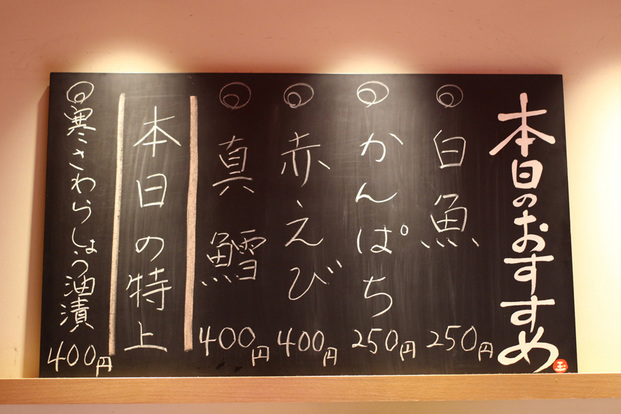 本日のおすすめ
白魚
250円
かんぱち
250円
赤えび
400円
真鱈
400円
本日の特上
寒さわらしょう油漬
400円